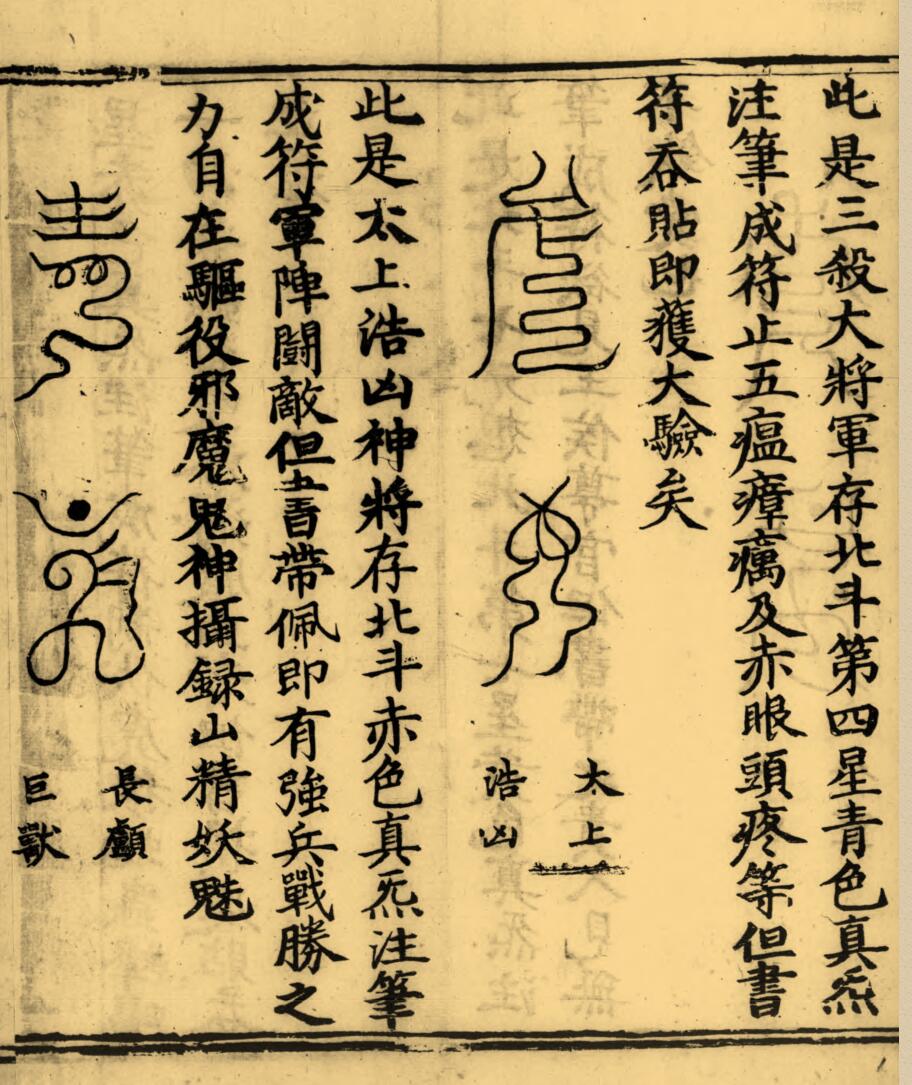 此是三殺大將軍存北斗第四星青色真炁
注筆成符止五瘟瘴癘及赤眼頭疼等但書
符吞貼即獲大驗矣
太上
浩凶
此是太上浩凶神將存北斗赤色真炁注筆
成符軍陣闘敵但書帶佩即有強兵戰勝之
力自在驅役邪魔鬼神攝録山精妖魅
長顱
巨獸